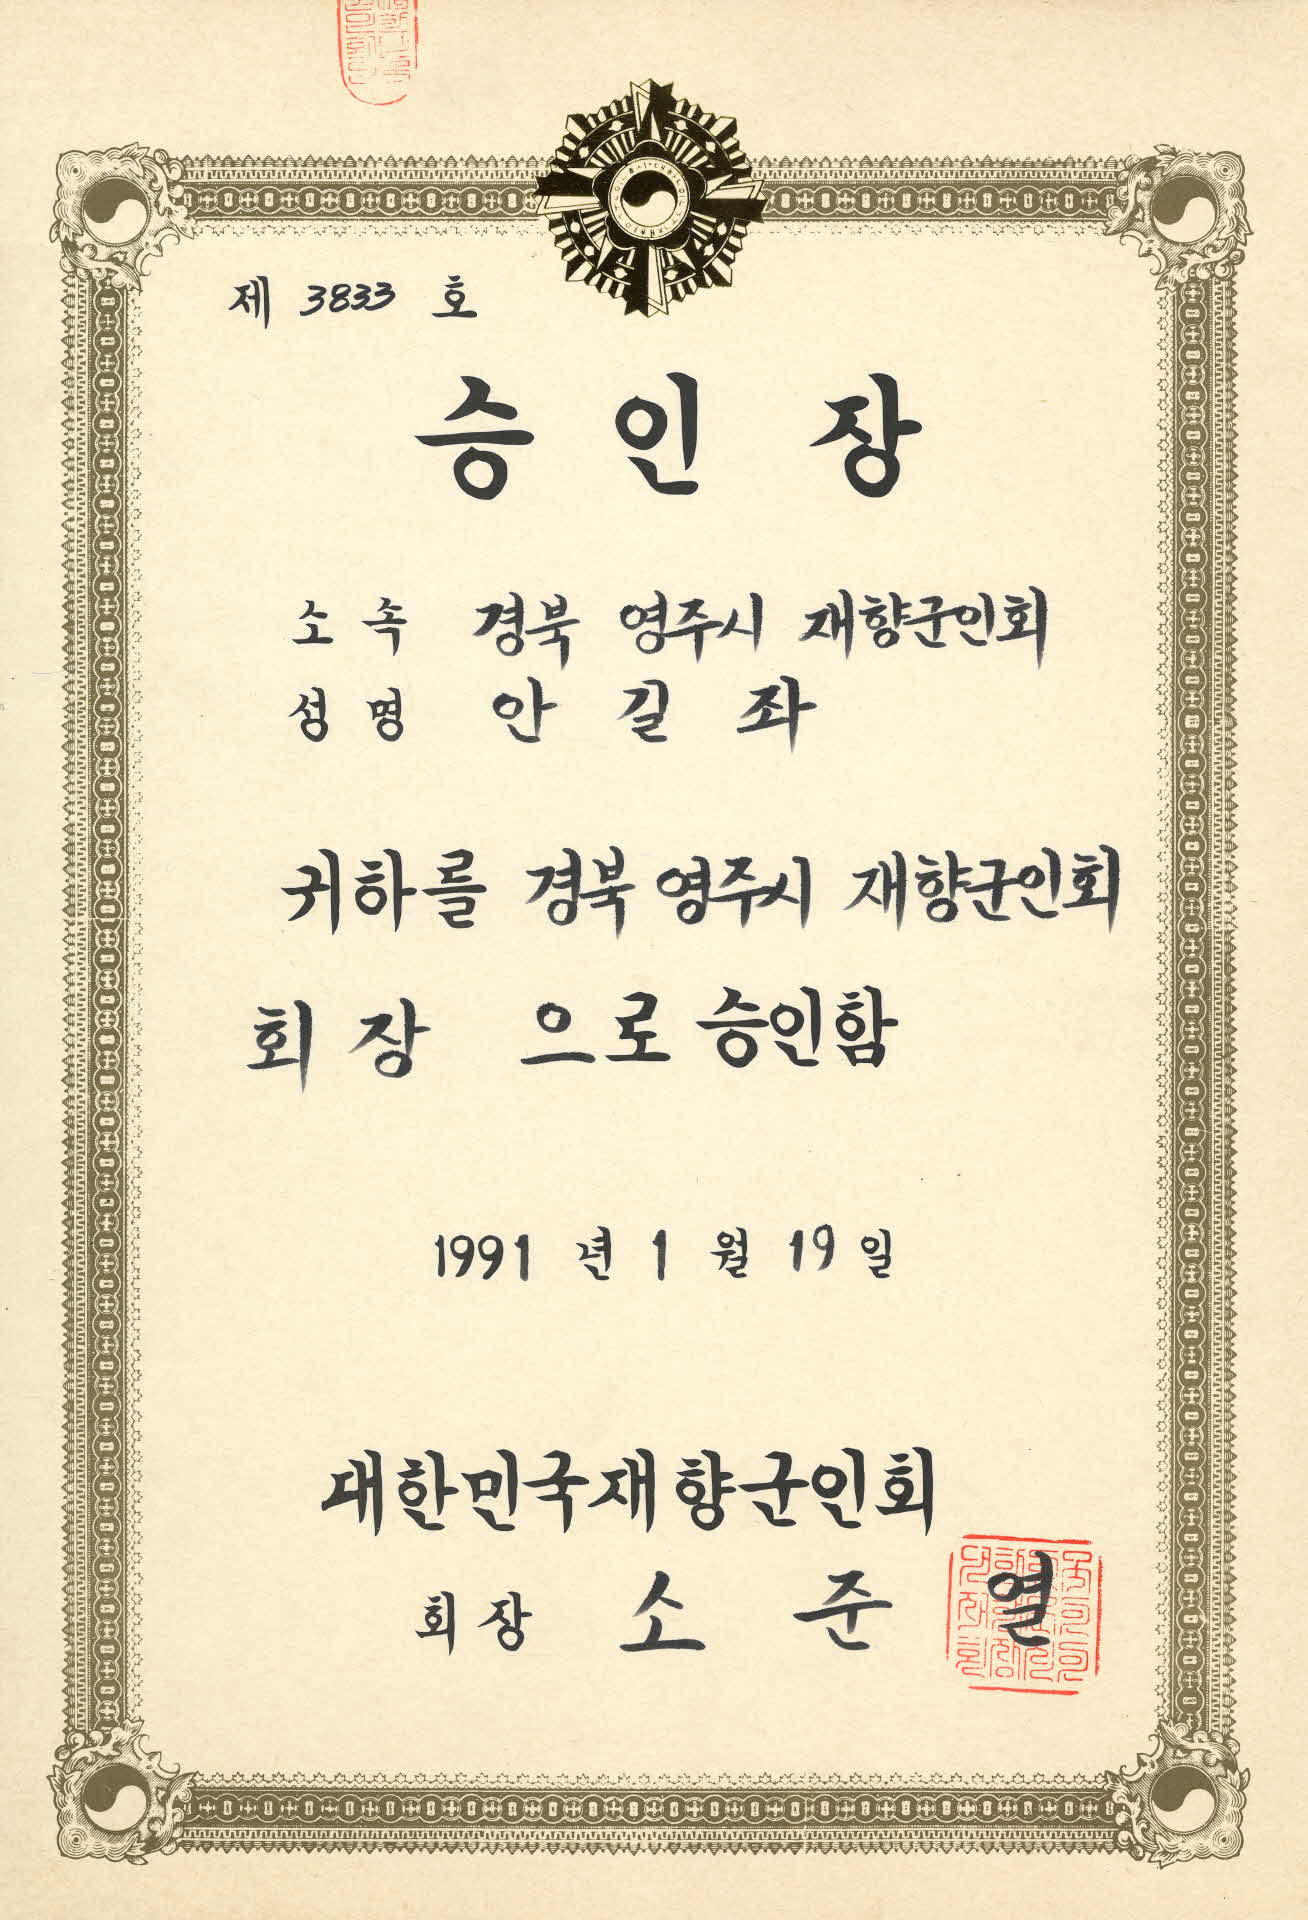 제 3833 호
승 인 장
소 속 경북 영주시 재향군인회
성 명 안 길 좌
귀하를 경북 영주시 재향군인회
회 장 으로 승인함
1991 년 1 월 19 일
대한민국재향군인회
회 장 소 준 열